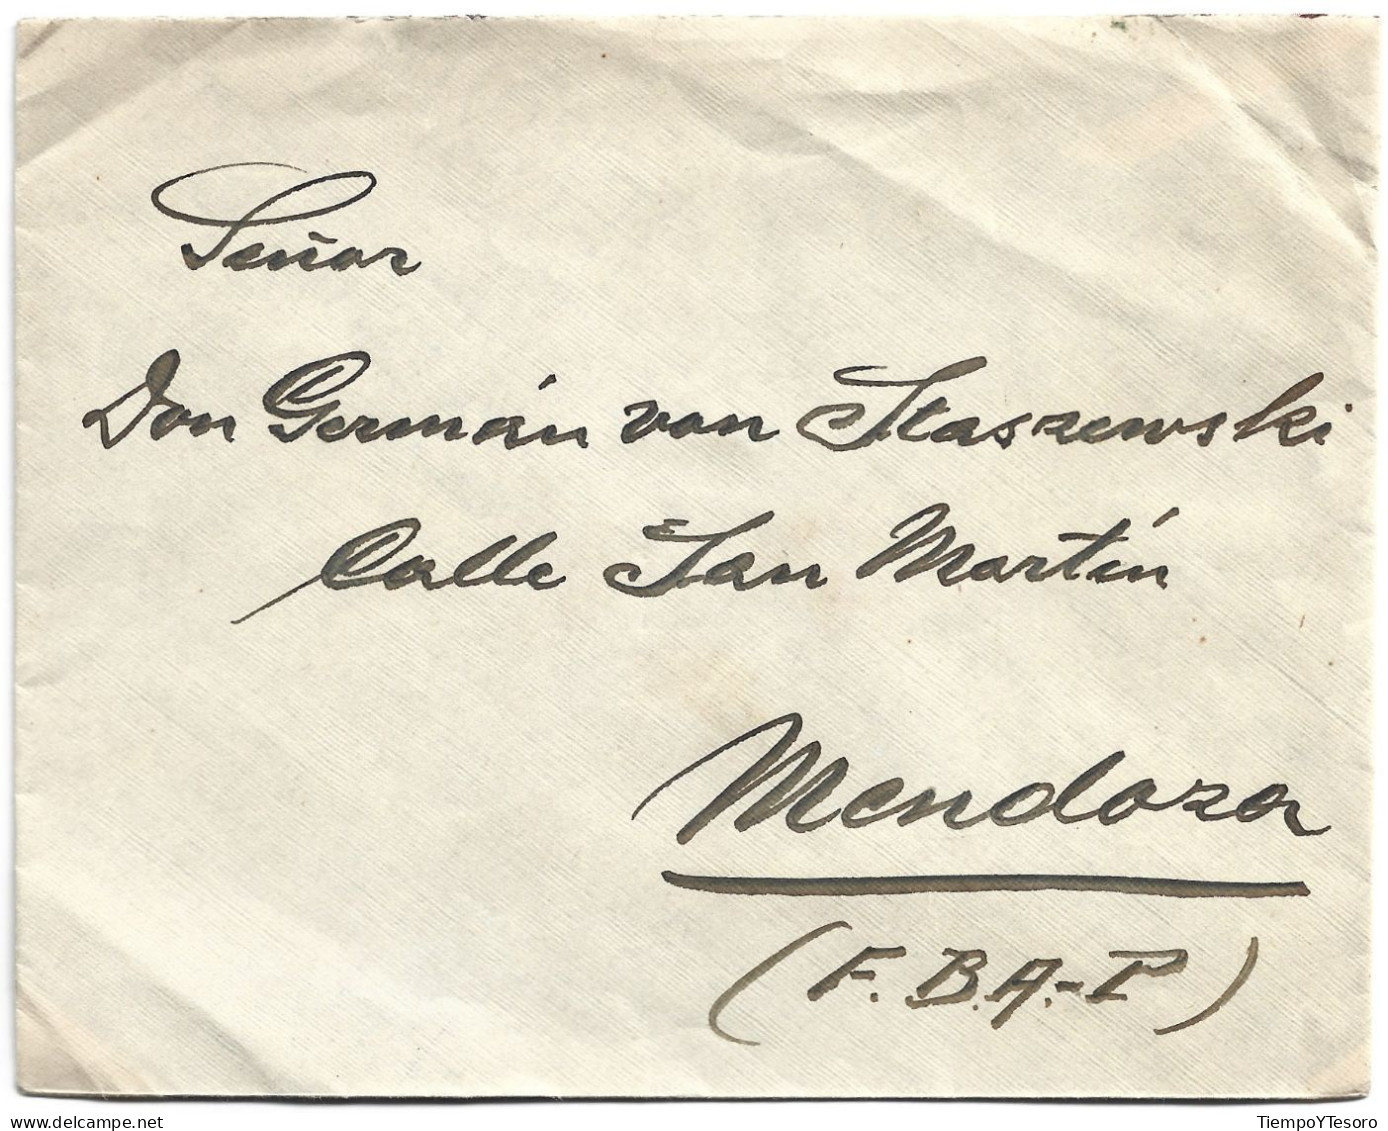 Señor
Don Germán von Staszewski
Calle San Martín
Mendoza
(F.B.A.-P)
TiempoYTesoro